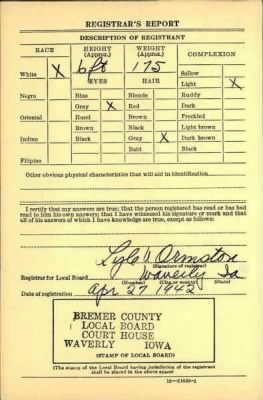 REGISTRAR'S REPORT
DESCRIPTION OF REGISTRANT
RACE HEIGHT (Approx.) WEIGHT (Approx.) COMPLEXION
White X 6 ft 175 Sallow
EYES HAIR Light X
Negro Blue Blonde Ruddy
Gray X Red Dark
Oriental Hazel Brown Freckled
Brown Black Light brown
Indian Black Gray X Dark brown
Bald Black
Filipino
Other obvious physical characteristics that will aid in identification
I certify that my answers are true; that the person registered has read or has had
read to him his own answers; that I have witnessed his signature or mark and that
all of his answers of which I have knowledge are true, except as follows:
Lyle A Ormston
(Signature of registrar)
Registrar for Local Board Waverly Ia
(Number) (City or county) (State)
Date of registration Apr 27 1942
BREMER COUNTY
LOCAL BOARD
COURT HOUSE
WAVERLY IOWA
(STAMP OF LOCAL BOARD)
(The stamp of the Local Board having jurisdiction of the registrant
shall be placed in the above space)
16-21630-1